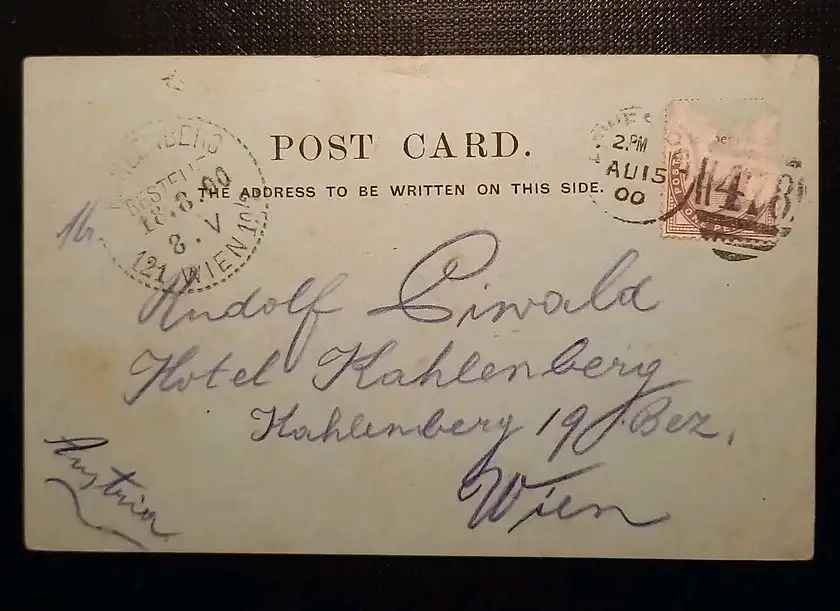 POST CARD.
THE ADDRESS TO BE WRITTEN ON THIS SIDE.
BESTELLT
18.8.00
8.V
121 WIEN 19/2
2.PM
AU15
00
478
POSTA
ONE PE
Rudolf Eiwald
Hotel Kahlenberg
Kahlenberg 19. Bez.
Wien
Austria